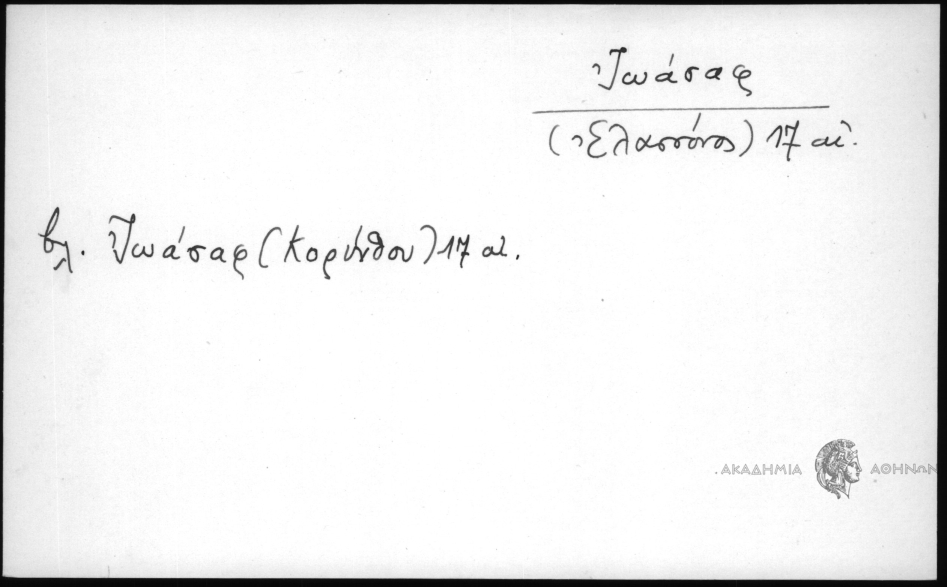 Ἰωάσαφ
(Ἐλασσόνος) 17 αἰ.
βλ. Ἰωάσαφ (Κορίνθου) 17 αἰ.
ΑΚΑΔΗΜΙΑ ΑΘΗΝΩΝ